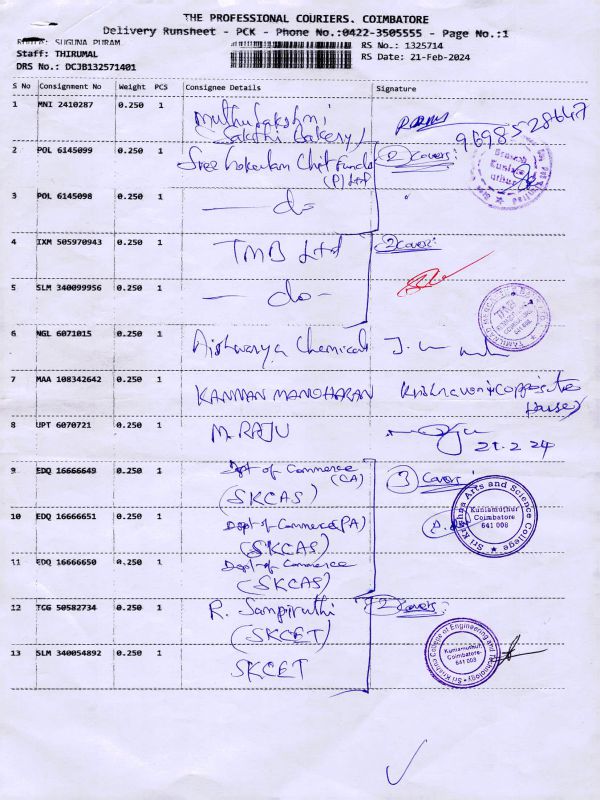 THE PROFESSIONAL COURIERS. COIMBATORE
Delivery Runsheet - PCK - Phone No.:0422-3505555 - Page No.:1
Route: SUGUNA PURAM
Staff: THIRUMAL
RS No.: 1325714
DRS No.: DCJB132571401
RS Date: 21-Feb-2024
S No Consignment No Weight PCS Consignee Details Signature
1 MNI 2410287 0.250 1 Muthulakshmi
(Sakthi Bakery)
9698528647
2 POL 6145099 0.250 1 Sree Gokulam Chit Funds
(P) Ltd
(2) Covers:
3 POL 6145098 0.250 1 — do —
4 IXM 505970943 0.250 1 TMB Ltd
2 Covers:
5 SLM 340099956 0.250 1 — do —
6 NGL 6071015 0.250 1 Aishwarya Chemical
7 MAA 108342642 0.250 1 KANNAN MANOHARAN
(opposite
House)
8 UPT 6070721 0.250 1 M. RAJU
21.2.24
9 EDQ 16666649 0.250 1 Dept of Commerce
(CA)
(SKCAS)
3 Covers
Sri Krishna Arts and Science College
Kuniamuthur
Coimbatore
641 008
10 EDQ 16666651 0.250 1 Dept of Commerce (PA)
(SKCAS)
11 EDQ 16666650 0.250 1 Dept of Commerce
(SKCAS)
12 TCG 50582734 0.250 1 R. Sampiruthi
(SKCET)
2 Covers:
13 SLM 340054892 0.250 1 SKCET
Sri Krishna College of Engineering and Technology
Kuniamuthur,
Coimbatore-
641 008